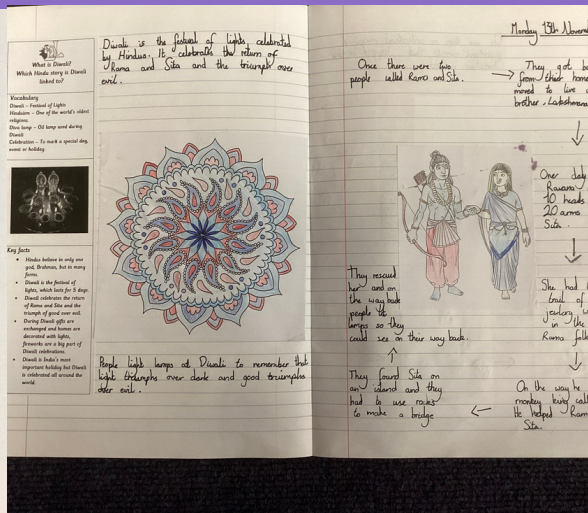 What is Diwali?
Which Hindu story is Diwali
linked to?
Vocabulary
Diwali – Festival of Lights
Hinduism – One of the world's oldest
religions.
Diva lamp – Oil lamp used during
Diwali
Celebration – To mark a special day,
event or holiday.
Key facts
Hindus believe in only one
god, Brahman, but in many
forms.
Diwali is the festival of
lights, which lasts for 5 days.
Diwali celebrates the return
of Rama and Sita and the
triumph of good over evil.
During Diwali gifts are
exchanged and homes are
decorated with lights,
fireworks are a big part of
Diwali celebrations.
Diwali is India's most
important holiday but Diwali
is celebrated all around the
world.
Diwali is the festival of lights, celebrated
by Hindus. It celebrates the return of
Rama and Sita and the triumph over
evil.
People light lamps at Diwali to remember that
light triumphs over dark and good triumphs
over evil.
Monday 13th
Once there were two
people called Rama and Sita.
They got
from their home
moved to live
brother, Lakshmana
One day
Ravana
10 heads
20 arms
Sita.
She had
trail of
jewlery
in the
Rama
On the way he
monkey king
He helped Ram
Sita.
They found Sita on
an island and they
had to use rocks
to make a bridge
They rescued
her and on
the way back
people lit
lamps so they
could see on their way back.